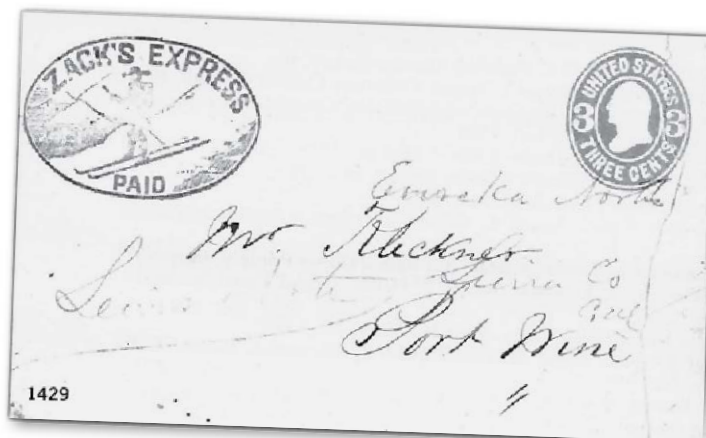 ZACK'S EXPRESS
PAID
UNITED STATES
3 3
THREE CENTS
Eureka North
Mr. Kleckner
Sierra Co
Cal
Port Wine
"
1429